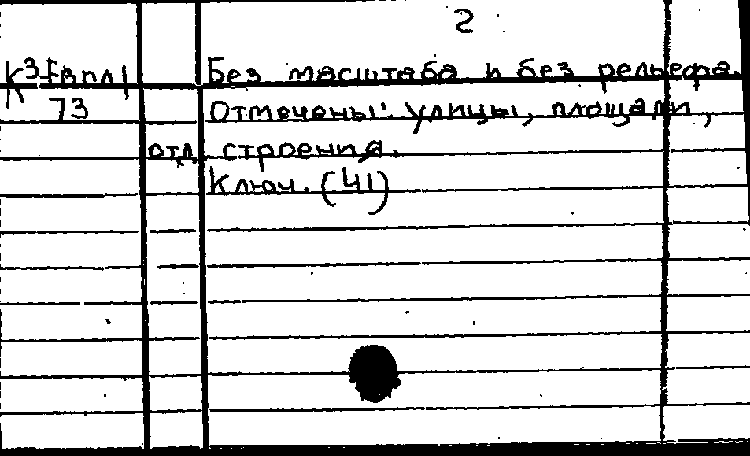 2
К³-Евпл1 Без масштаба и без рельефа.
73 Отмечены: улицы, площади,
отд. строения.
Ключ. (41)